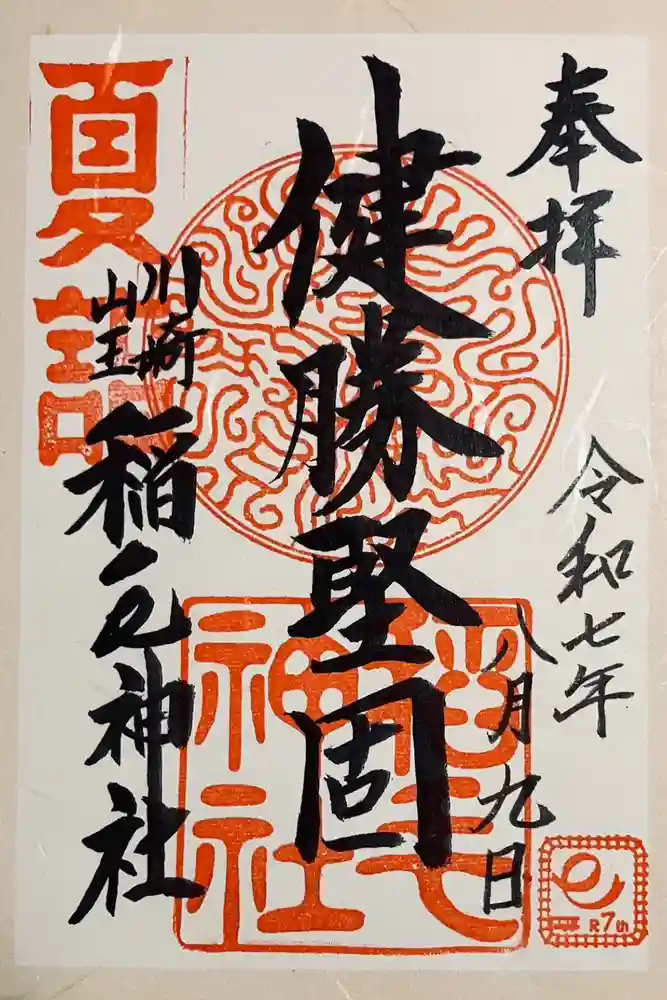 奉拝
令和七年
八月九日
健勝堅固
川崎
山王
稲毛神社
夏詣
稲毛
神社
R7th